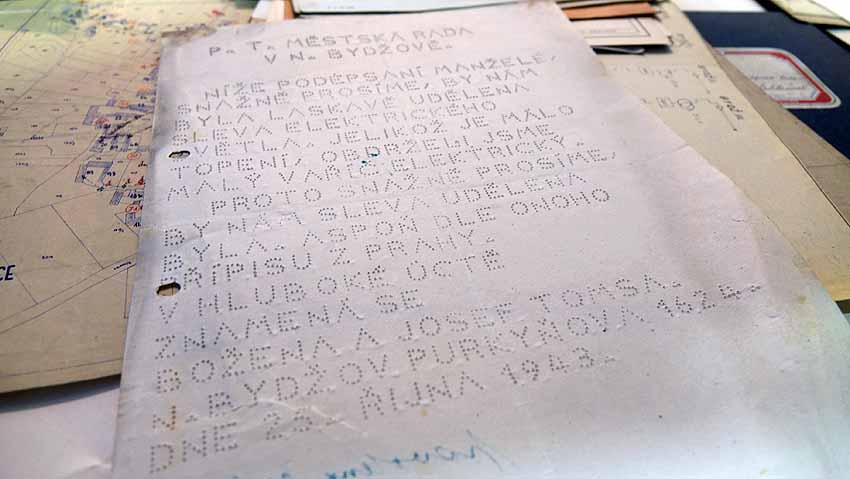 P. T. MĚSTSKÁ RADA
V N. BYDŽOVĚ.
NÍŽE PODĚPSÁNÍ MANŽELÉ,
SNAŽNĚ PROSÍME, BY NÁM
BYLA LASKAVĚ UDĚLENA
SLEVA ELEKTRICKÉHO
SVĚTLA, JELIKOŽ JE MÁLO
TOPENÍ, OBDRŽELI JSME
MALÝ VAŘIČ ELEKTRICKÝ.
PROTO SNAŽNĚ PROSÍME,
BY NÁM SLEVA UDĚLENA
BYLA, ASPOŇ DLE ONOHO
PŘÍPISU Z PRAHY.
V HLUBOKÉ ÚCTĚ
ZNAMENÁ SE
BOŽENA A JOSEF TOMSA.
N. BYDŽOV PURKYŇOVA
DNE 25. ŘÍJNA 1943.